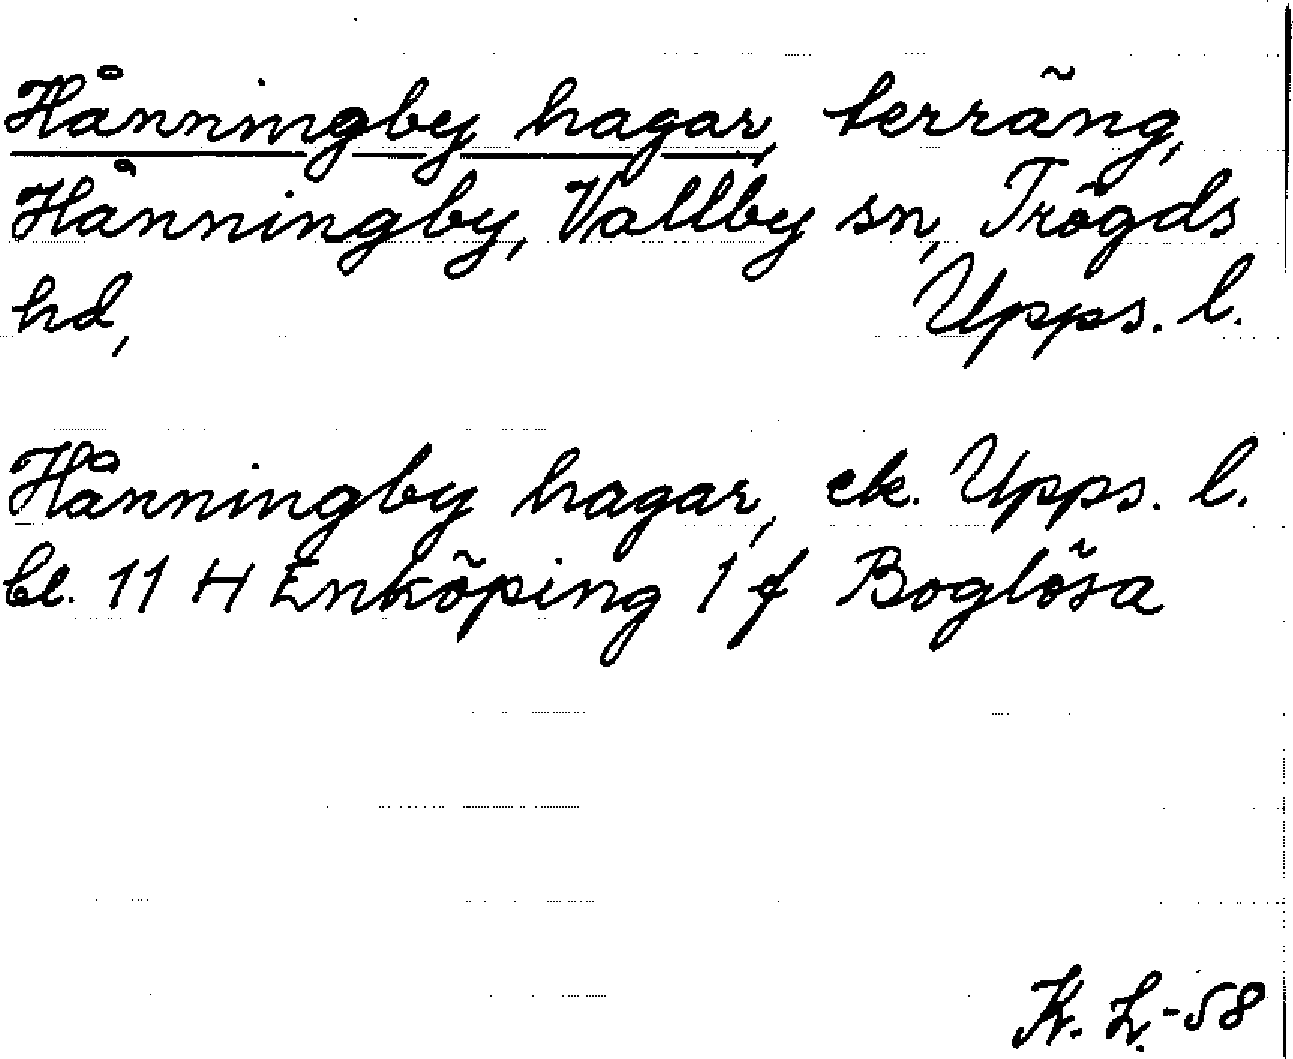 Hånningby hagar, terräng,
Hånningby, Vallby sn, Trögds
hd, Upps. l.
Hånningby hagar, ek. Upps. l.
bl. 11 H Enköping 1 f Boglösa
K. L.-58